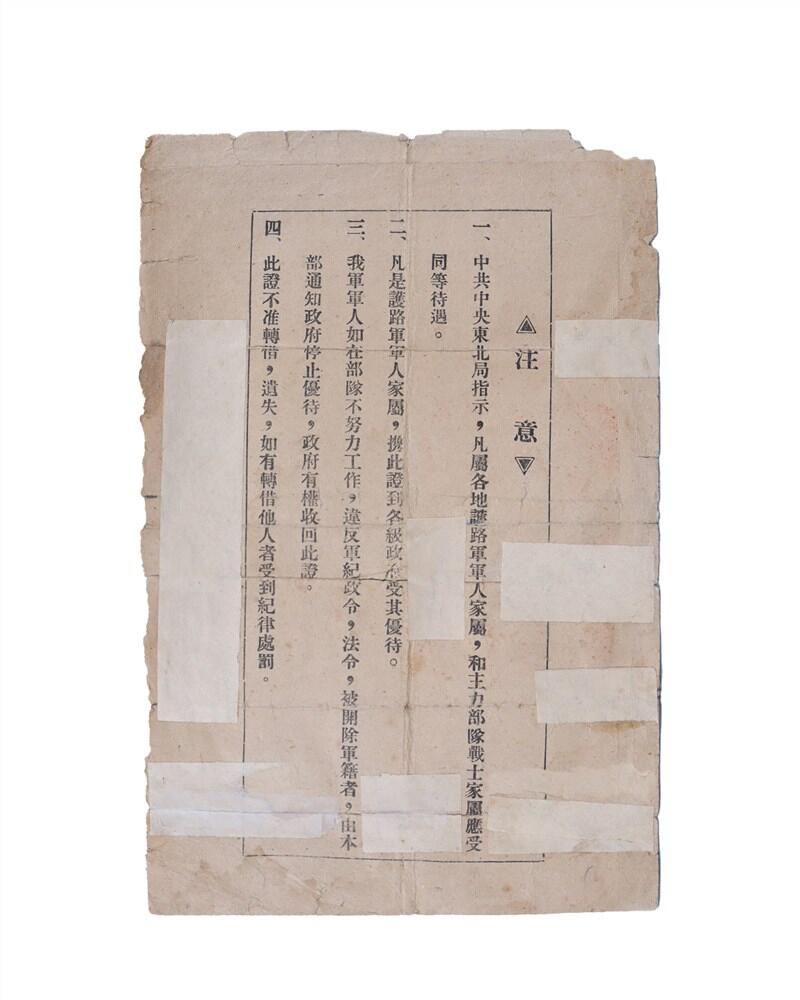 ▲注意▼
一、中共中央東北局指示，凡屬各地護路軍軍人家屬，和主力部隊戰士家屬應受
同等待遇。
二、凡是護路軍軍人家屬，携此證到各級政府受其優待。
三、我軍軍人如在部隊不努力工作，違反軍紀政令，法令，被開除軍籍者，由本
部通知政府停止優待，政府有權收回此證。
四、此證不准轉借，遺失，如有轉借他人者受到紀律處罰。